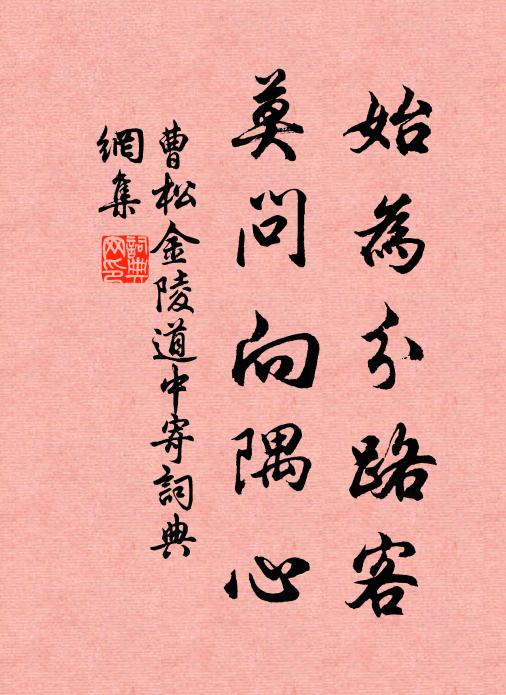 始為分路客
莫問向隅心
曹松金陵道中寄詞典
網集
詞典
网印